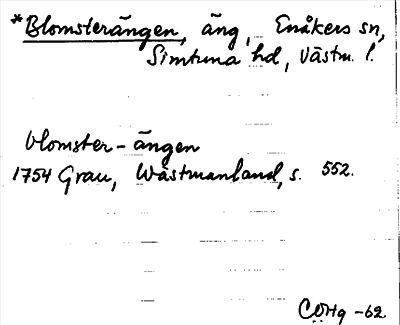 *Blomsterängen, äng, Enåkers sn,
Simtuna hd, Västm. l.
blomster-ängen
1754 Grau, Wästmanland, s. 552.
COHq -62